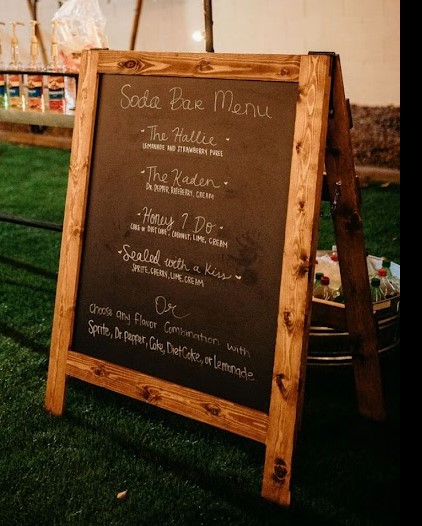 Soda Bar Menu
• The Hallie •
LEMONADE AND STRAWBERRY PUREE
• The Kaden •
DR. PEPPER, RASPBERRY, CREAM
• Honey I Do •
COKE OR DIET COKE, COCONUT, LIME, CREAM
• Sealed with a Kiss •
SPRITE, CHERRY, LIME, CREAM
Or
choose any flavor combination with
Sprite, Dr. pepper, Coke, Diet Coke, or Lemonade.